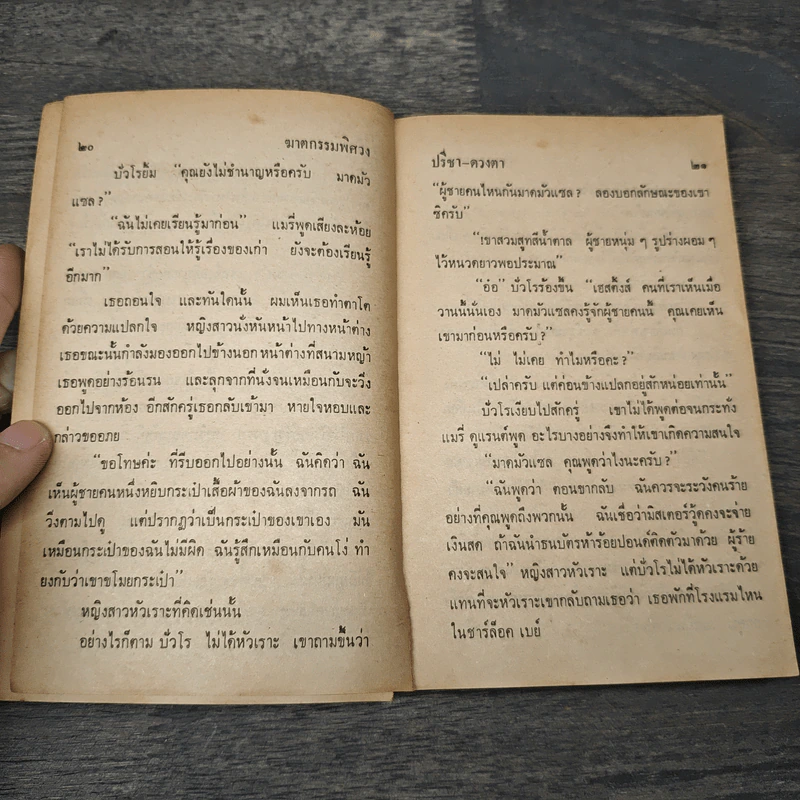 ๒๐ ฆาตกรรมพิศวง
ปัวโรยิ้ม “คุณยังไม่ชำนาญหรือครับ มาดมัว
แซล?”
“ฉันไม่เคยเรียนรู้มาก่อน” แมรี่พูดเสียงละห้อย
“เราไม่ได้รับการสอนให้รู้เรื่องของเก่า ยังจะต้องเรียนรู้
อีกมาก”
เธอถอนใจ และทันใดนั้น ผมเห็นเธอทำตาโต
ด้วยความแปลกใจ หญิงสาวนั่งหันหน้าไปทางหน้าต่าง
เธอขณะนั้นกำลังมองออกไปข้างนอกหน้าต่างที่สนามหญ้า
เธอพูดอย่างร้อนรน และลุกจากที่นั่งจนเหมือนกับจะวิ่ง
ออกไปจากห้อง อีกสักครู่เธอกลับเข้ามา หายใจหอบและ
กล่าวขออภย
“ขอโทษค่ะ ที่รีบออกไปอย่างนั้น ฉันคิดว่า ฉัน
เห็นผู้ชายคนหนึ่งหยิบกระเป๋าเสื้อผ้าของฉันลงจากรถ ฉัน
วิ่งตามไปดู แต่ปรากฏว่าเป็นกระเป๋าของเขาเอง มัน
เหมือนกระเป๋าของฉันไม่มีผิด ฉันรู้สึกเหมือนกับคนโง่ ทำ
ยังกับว่าเขาขโมยกระเป๋า”
หญิงสาวหัวเราะที่คิดเช่นนั้น
อย่างไรก็ตาม ปัวโร ไม่ได้หัวเราะ เขาถามขึ้นว่า
ปรีชา–ดวงตา ๒๑
“ผู้ชายคนไหนกันมาดมัวแซล? ลองบอกลักษณะของเขา
ซิครับ”
“เขาสวมสูทสีน้ำตาล ผู้ชายหนุ่ม ๆ รูปร่างผอม ๆ
ไว้หนวดยาวพอประมาณ”
“อ๋อ” ปัวโรร้องขึ้น “เฮสติ้งส์ คนที่เราเห็นเมื่อ
วานนี้นั่นเอง มาดมัวแซลคงรู้จักผู้ชายคนนี้ คุณเคยเห็น
เขามาก่อนหรือครับ?”
“ไม่ ไม่เคย ทำไมหรือคะ?”
“เปล่าครับ แต่ค่อนข้างแปลกอยู่สักหน่อยเท่านั้น”
ปัวโรเงียบไปสักครู่ เขาไม่ได้พูดต่อจนกระทั่ง
แมรี่ ดูแรนต์พูด อะไรบางอย่างจึงทำให้เขาเกิดความสนใจ
“มาดมัวแซล คุณพูดว่าไงนะครับ?”
“ฉันพูดว่า ตอนขากลับ ฉันควรจะระวังคนร้าย
อย่างที่คุณพูดถึงพวกนั้น ฉันเชื่อว่ามิสเตอร์วู้ดคงจะจ่าย
เงินสด ถ้าฉันนำธนบัตรห้าร้อยปอนด์ติดตัวมาด้วย ผู้ร้าย
คงจะสนใจ” หญิงสาวหัวเราะ แต่ปัวโรไม่ได้หัวเราะด้วย
แทนที่จะหัวเราะเขากลับถามเธอว่า เธอพักที่โรงแรมไหน
ในชาร์ล็อค เบย์